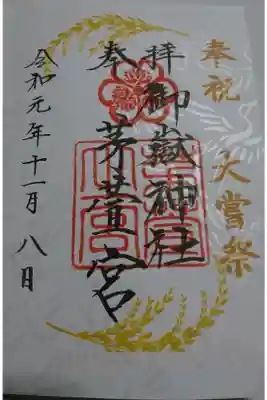 奉祝
大嘗祭
奉拝
御嶽神社
茅萱宮
令和元年十一月八日